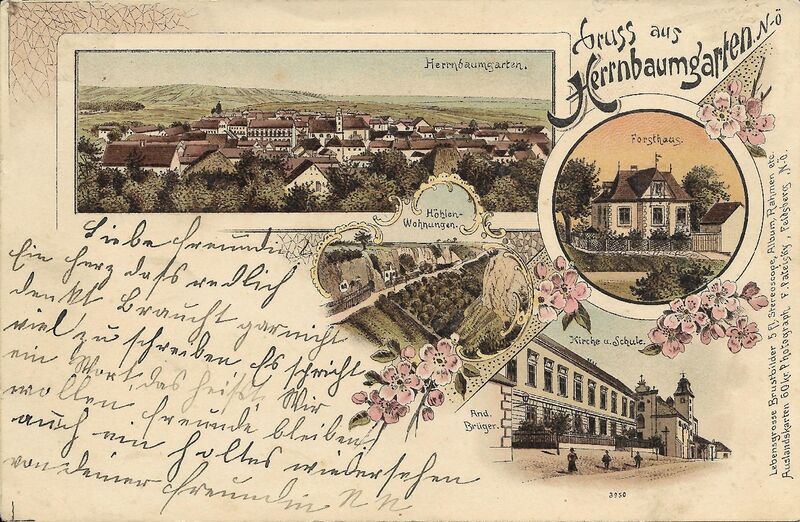 Gruss aus
Herrnbaumgarten. N-Ö
Herrnbaumgarten.
Forsthaus.
Höhlen-
Wohnungen.
Kirche u. Schule.
And.
Brüger.
3950
Lebensgrosse Brustbilder 5 fl, Stereoscope, Album, Rahmen etc.
Auslandskarten 60 kr. Photograph F. Feldsberg N.Ö.
Liebe Freundin
Ein Herz dass redlich
denkt Braucht gar nicht
viel zu schreiben Es spricht
ein Wort, das heißt Wir
wollen Freunde bleiben
auch ein holtes wiedersehen
von deiner Freundin N N